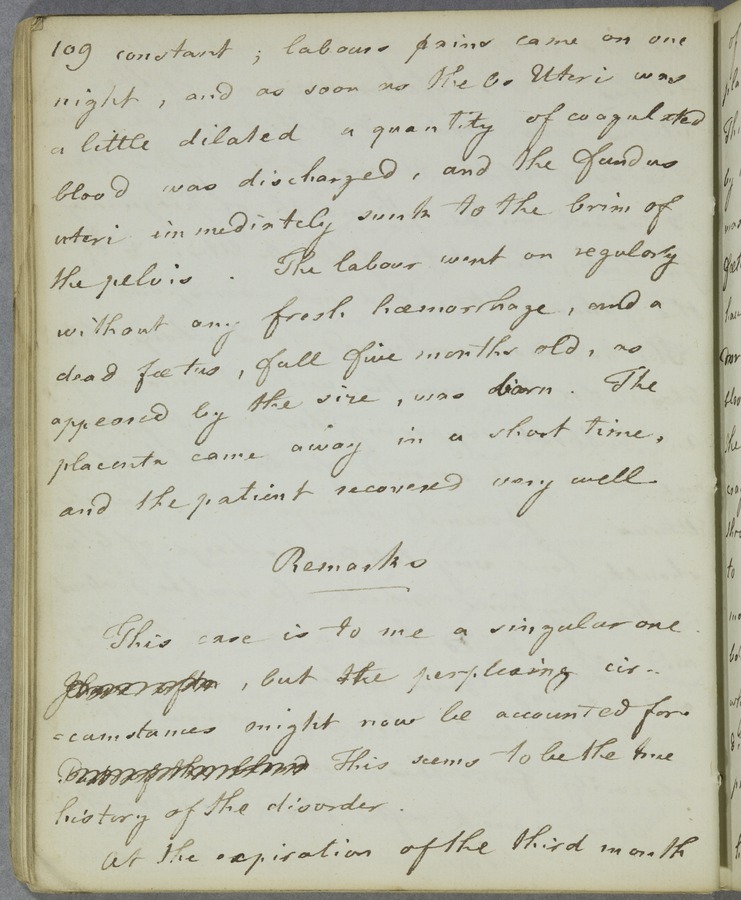 109 constant ; labour pains came on one
night , and as soon as the Os Uteri was
a little dilated a quantity of coagulated
blood was discharged , and the fundus
uteri immediately sunk to the brim of
the pelvis . The labour went on regularly
without any fresh hæmorrhage , and a
dead fœtus , full five months old , as
appeared by the size , was born . The
placenta came away in a short time ,
and the patient recovered very well .
Remarks
This case is to me a singular one .
, but the perplexing cir-
=cumstances might now be accounted for .
This seems to be the true
history of the disorder .
At the expiration of the third month